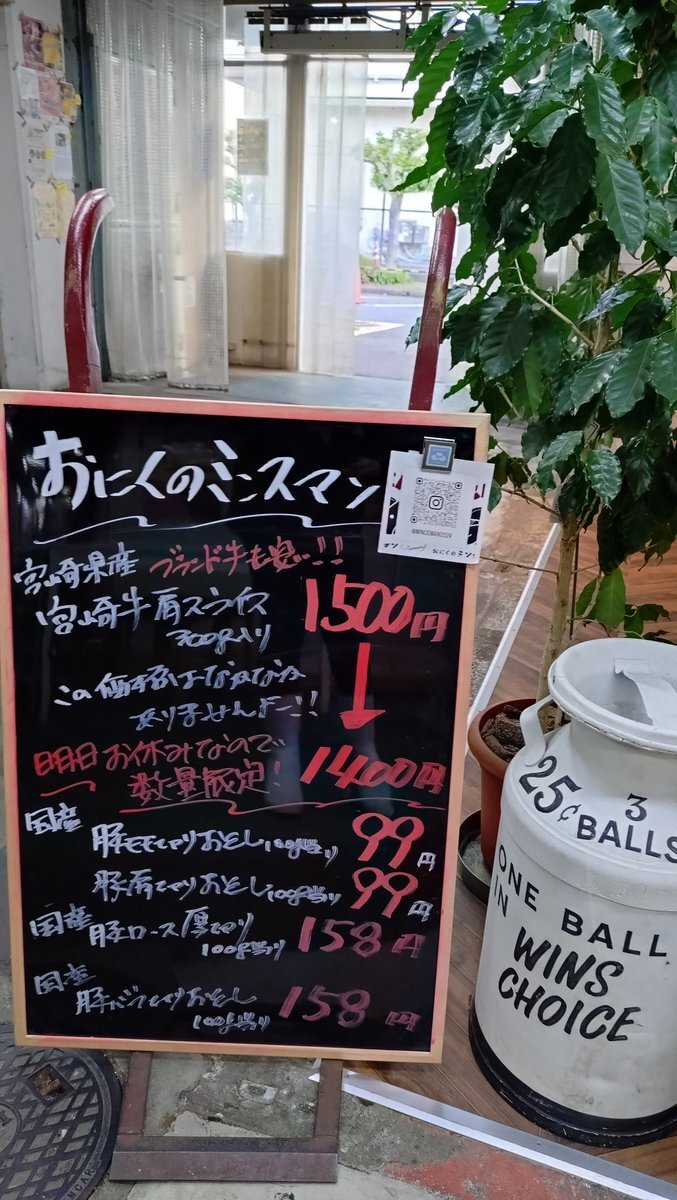 おにくのミンスマン
@MINCEMAN2024
おにくのミン
宮崎県産 ブランド牛も安い!!
宮崎牛肩スライス 1500円
300g入り
この価格はなかなか
ありませんよー!!
明日お休みなので
数量限定! 1400円
国産
豚モモ切りおとし100g当り 99円
豚肩切りおとし100g当り 99円
国産
豚ロース厚切り
100g当り 158円
国産
豚バラ切りおとし
100g当り 158円
25¢
3
BALLS
ONE BALL
IN
WINS
CHOICE